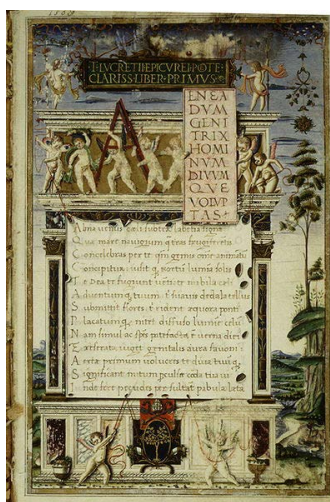 1483
T·LVCRETII EPICVREI POETE
CLARISS·LIBER·PRIMVS·
A
ENEA
DVM
GENI
TRIX
HOMI
NVM
DIVVM
QVE
VOLVP
TAS
Alma venus celi subter labentia signa
Que mare navigerum q terras frugiferentis
Concelebras per te qm genus omne animantu
Concipitur visit q exortu lumina solis
Te Dea te fugiunt venti te nubila celi
Adventumq tuum t suavis dedala tellus
Submittit flores t rident equora ponti
Placatumq nitet diffuso lumine celu
Nam simul ac spes patefacta e verni diei
Et reserata viget genitalis aura favoni
Aerie primum volucres te diva tuuq
Significant initum perculse corda tua vi
Inde fere pecudes persultat pabula leta